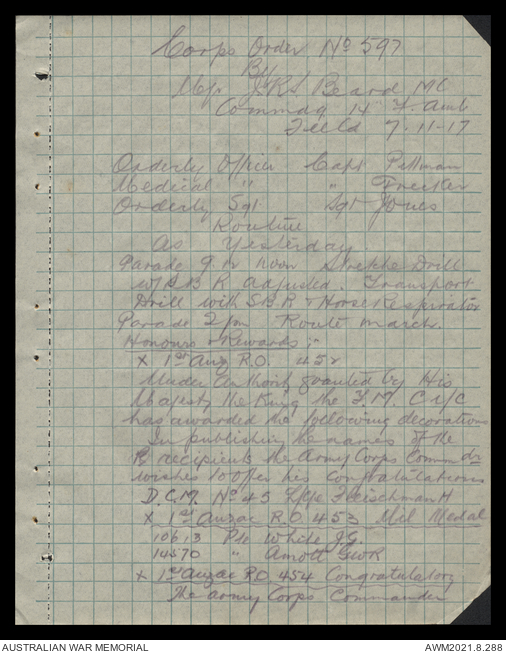 Corps Order No 597
By
Maj J.R.S. Beard MC
Commdg 14 F. Amb
Field 7-11-17
Orderly Officer Capt Pittman
Medical " " Frecker
Orderly Sgt Sgt Jones
Routine
As Yesterday.
Parade 9 to noon Stretcher Drill
w/ S B R adjusted. Transport
Drill with SBR & Horse Respirator
Parade 2 pm Route march.
Honours & Rewards;-
X 1st Anz R.O. 452
Under authority granted by His
Majesty the King the F.M. C i/C
has awarded the following decorations
In publishing the names of the
recipients the Army Corps Commdr
wishes to offer his congratulations
D.C.M. No 45 Fleischman H
X 1st Anzac R.O. 453 Mil Medal
10613 Pte White J.G.
14570 " Arnott GWR
X 1st Anzac RO 454 Congratulatory
The Army Corps Commander
AUSTRALIAN WAR MEMORIAL
AWM2021.8.288